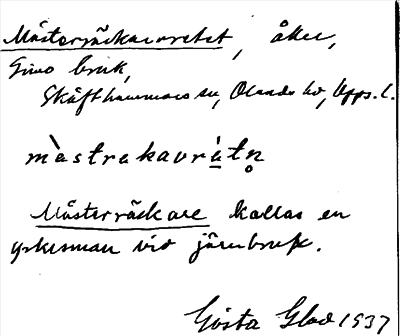 Mästerräckarevretet, åker,
Gimo bruk,
Skäfthammars sn, Olands hd, Upps. l.
mästrakavrätn
Mästerräckare kallas en
yrkesman vid järnbruk.
Gösta Glad 1937